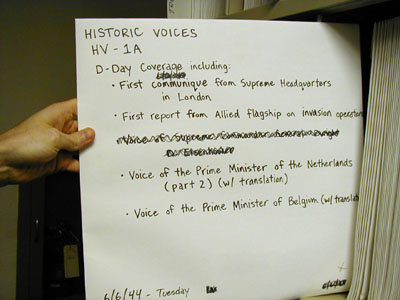 HISTORIC VOICES
HV - 1A
D-Day Coverage including:
• First communique from Supreme Headquarters
in London
• First report from Allied flagship on invasion operations
Voice of Supreme Commander General Dwight
D. Eisenhower
• Voice of the Prime Minister of the Netherlands
(part 2) (w/ translation)
• Voice of the Prime Minister of Belgium (w/ translation
6/6/44 - Tuesday